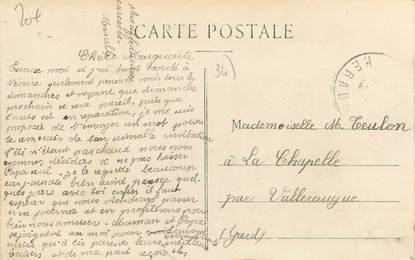 CARTE POSTALE
201
34
HERAU
Chère Marguerite
Excuse moi si j'ai tant tardé à
t'écrire seulement pensant venir tous les
dimanches et voyant que dimanche
prochain se sera pareil, puis que
l'auto est en réparation, je me suis
proposé de t'envoyer un mot pour
te remercier de ton aimable invitation
S'il n'étant pas chaud nous nous
sommes décidées à ne pas laisser
Papa seul. Je le regrette beaucoup
car j'aurais bien aimé passer quel-
ques jours avec toi enfin il faut
espérer que nous viendrons passer
une journée et en profiterons pour
bien nous amuser. Maman et Papa
se joignent an moi pour
leurs meilleurs
et de ma part
plus affectueuses
caresses
Marcelle
Mademoiselle M. Teulon
à La Chapelle
par Valleraugue
(Gard)